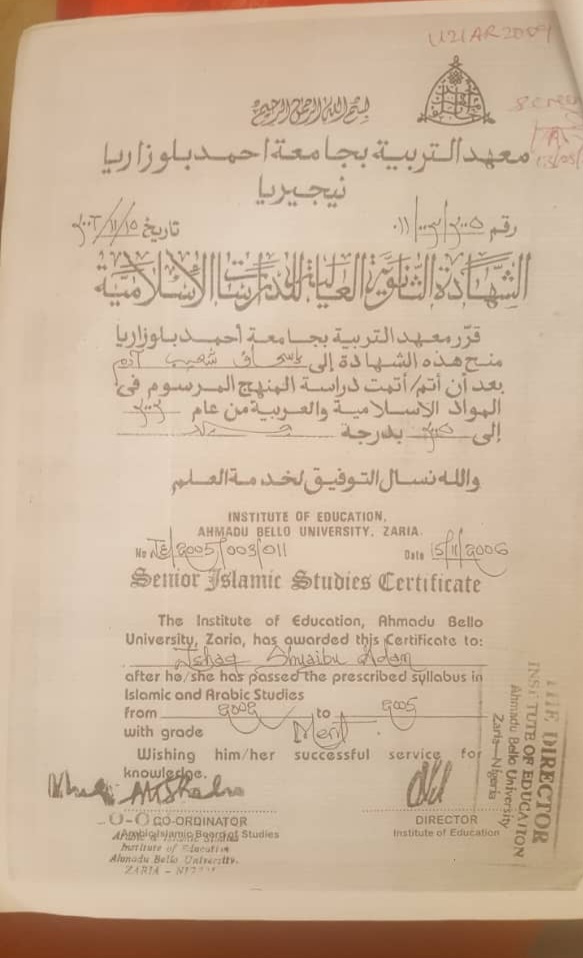 U21AR2009
Screen
بسم الله الرحمن الرحيم
معهد التربية بجامعة احمد بلو زاريا
نيجيريا
رقم ٠١١/٠٠٣/٢٠٠٥ تاريخ ١٥/١١/٢٠٠٦
الشهادة الثانوية العالية للدراسات الإسلامية
قرر معهد التربية بجامعة أحمد بلو زاريا
منح هذه الشهادة إلى إسحاق شعيب آدم
بعد أن أتم/أتمت دراسة المنهج المرسوم في
المواد الإسلامية والعربية من عام
إلى بدرجة جيد
والله نسال التوفيق لخدمة العلم
INSTITUTE OF EDUCATION,
AHMADU BELLO UNIVERSITY, ZARIA.
No IE/2005/003/011 Date 15/11/2006
Senior Islamic Studies Certificate
The Institute of Education, Ahmadu Bello
University, Zaria, has awarded this Certificate to:
Ishaq Shuaibu Adam
after he/she has passed the prescribed syllabus in
Islamic and Arabic Studies
from to 2005
with grade Merit
Wishing him/her successful service for
knowledge.
CO-ORDINATOR
Arabic/Islamic Board of Studies
Institute of Education
Ahmadu Bello University.
DIRECTOR
Institute of Education
THE DIRECTOR
INSTITUTE OF EDUCATION
Ahmadu Bello University
Zaria—Nigeria